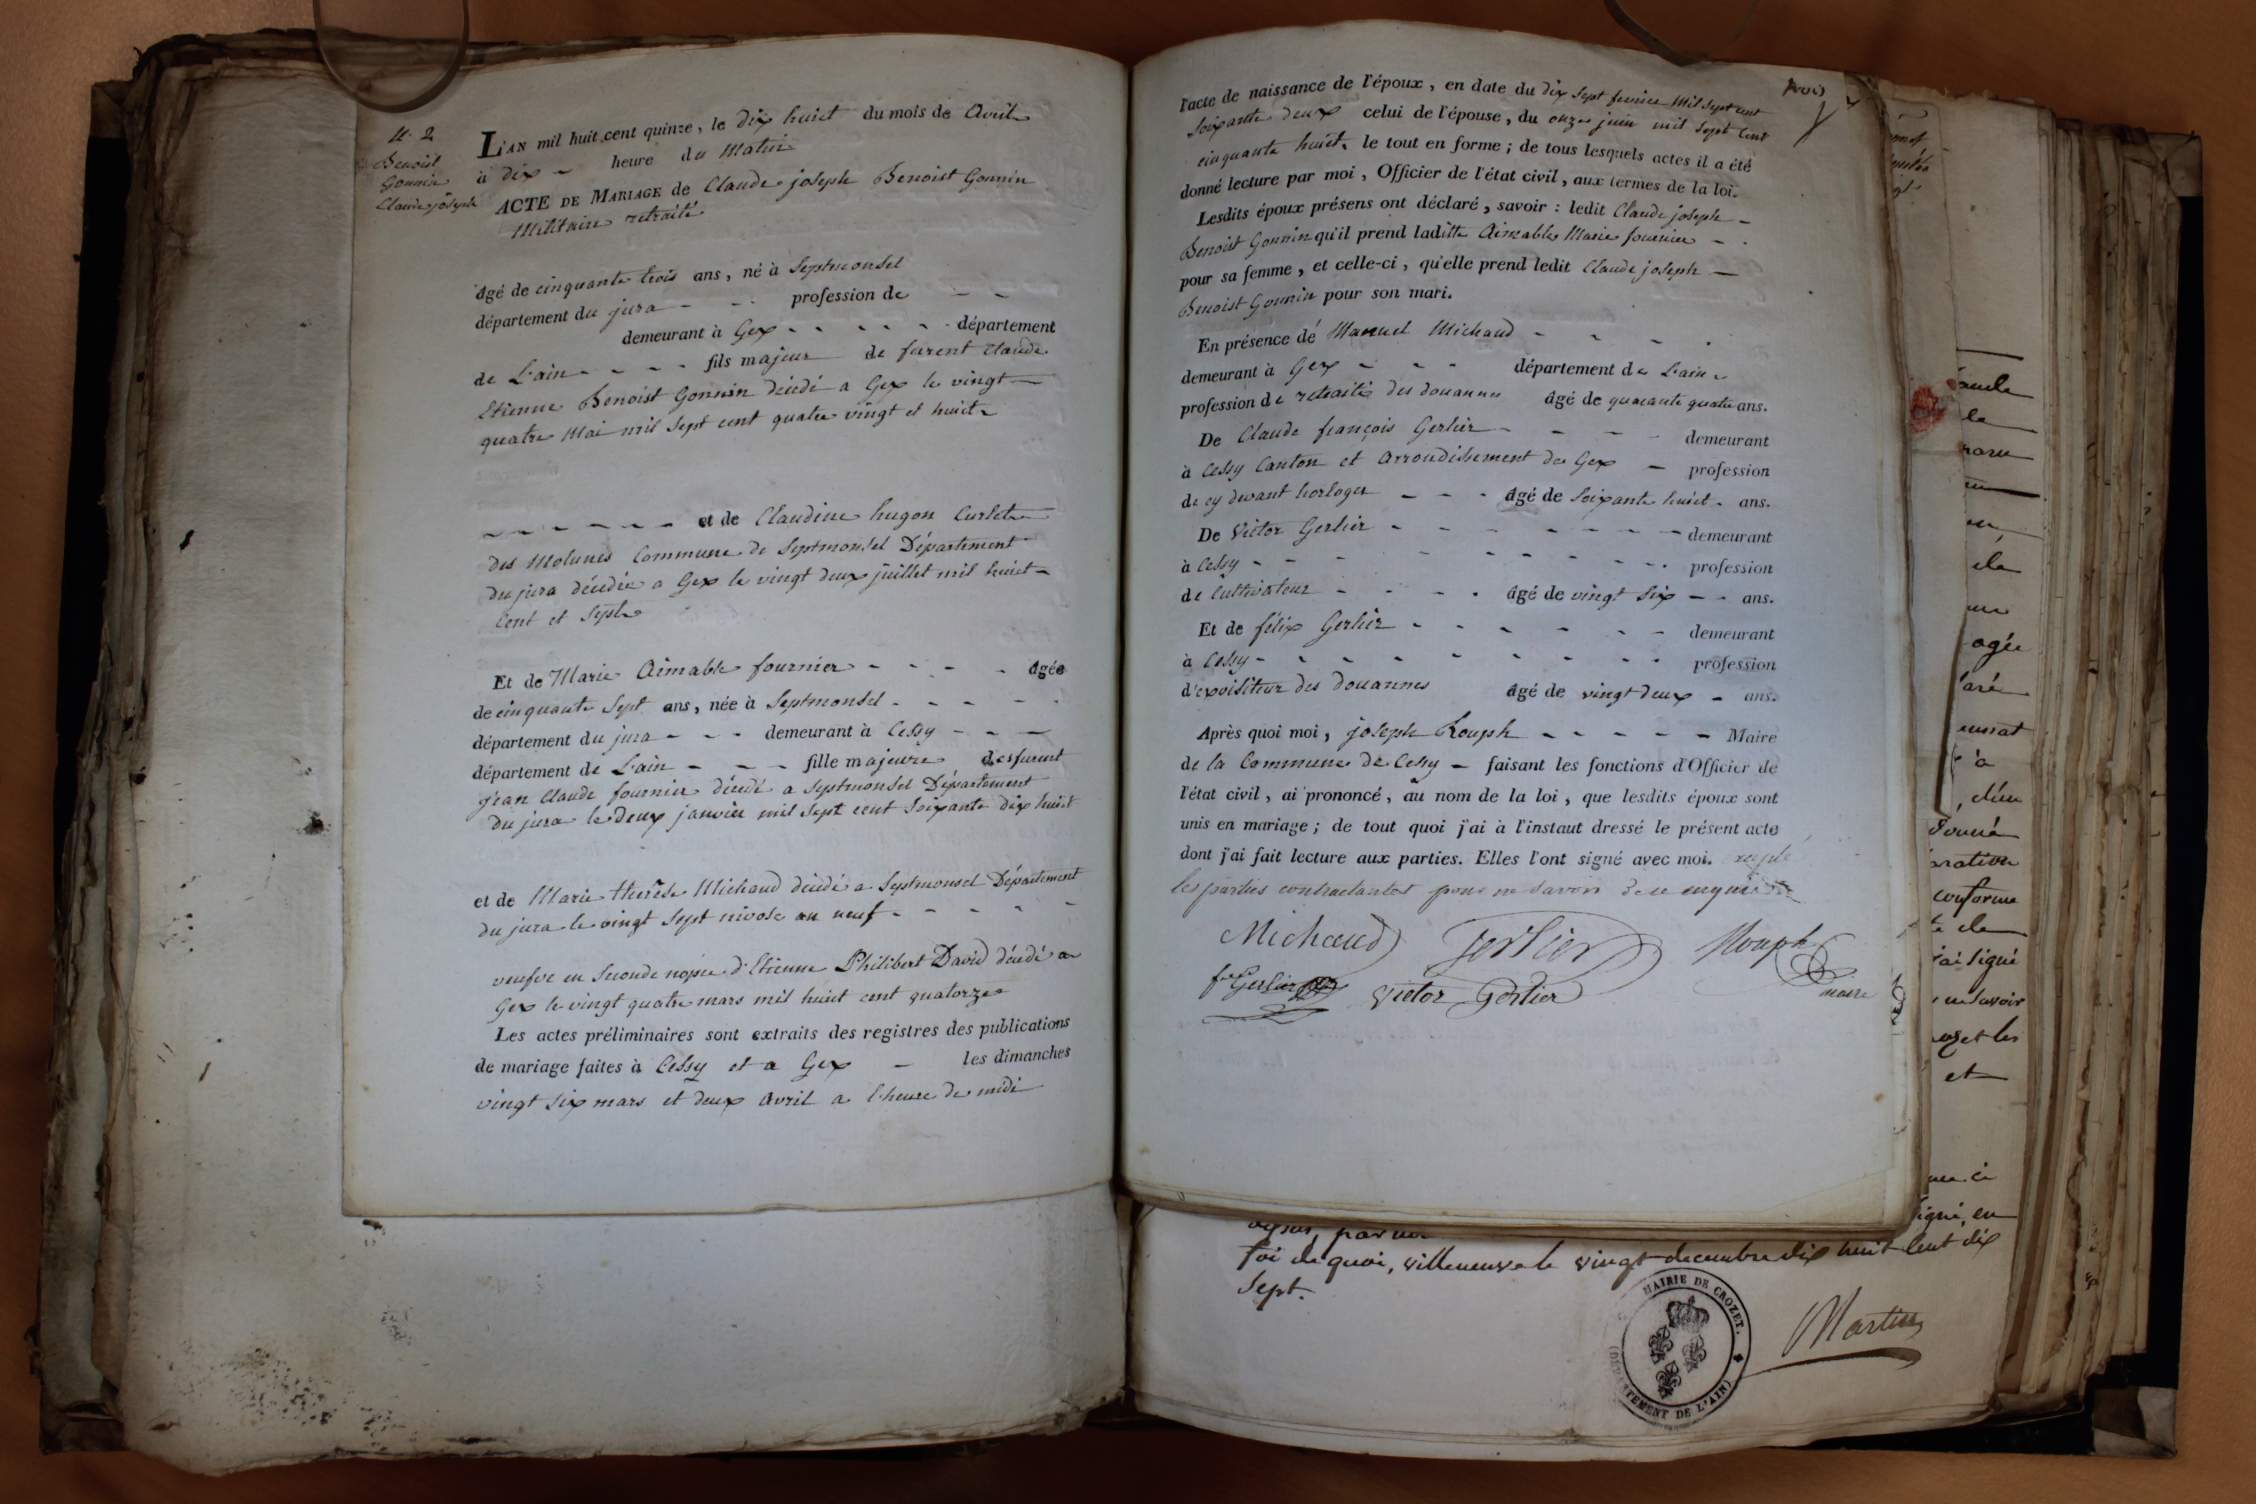 N. 2
Benoist
Gonnin
Claude joseph
L'AN mil huit cent quinze, le dix huict du mois de Avril
à dix heure du Matin
ACTE DE MARIAGE de Claude joseph Benoist Gonnin
Militaire retraité
âgé de cinquante trois ans, né à Septmonsel
département du jura - - profession de - -
demeurant à Gex - - - - - département
de L'ain - - - - fils majeur de furent Claude
Etienne Benoist Gonnin décédé a Gex le vingt
quatre Mai mil sept cent quatre vingt et huict
- - - - - - et de Claudine hugon Curlet
des Molunes Commune de Septmonsel Département
du jura décédée a Gex le vingt deux juillet mil huict
Cent et Sept
Et de Marie Aimable fournier - - - - âgée
de cinquante Sept ans, née à Septmonsel - - - - -
département du jura - - - demeurant à Cessy - - -
département de L'ain - - - fille majeure de furent
jean Claude fournier décédé a Septmonsel Département
du jura le deux janvier mil Sept cent Soixante dix huict
et de Marie thérèse Michaud décédé a Septmonsel Département
du jura le vingt Sept nivose an neuf - - - - -
veufve en Seconde nopce d'Etienne Philibert David décédé a
Gex le vingt quatre mars mil huict cent quatorze
Les actes préliminaires sont extraits des registres des publications
de mariage faites à Cessy et a Gex - les dimanches
vingt Six mars et deux Avril a l'heure de midi
l'acte de naissance de l'époux, en date du dix Sept fevrier Mil Sept cent
Soixante deux celui de l'épouse, du onze juin mil Sept Cent
cinquante huict, le tout en forme ; de tous lesquels actes il a été
donné lecture par moi, Officier de l'état civil, aux termes de la loi.
Lesdits époux présens ont déclaré, savoir : ledit Claude joseph -
Benoist Gonnin qu'il prend laditte Aimable Marie fournier - -
pour sa femme, et celle-ci, qu'elle prend ledit Claude joseph -
Benoist Gonnin pour son mari.
En présence de Manuel Michaud - - - -
demeurant à Gex - - - département de L'ain
profession de retraités des douannes âgé de quarante quatre ans.
De Claude françois Gerlier - - - - demeurant
à Cessy Canton et Arrondissement de Gex - profession
de cy devant horloger - - - âgé de Soixante huict - ans.
De Victor Gerlier - - - - - - - demeurant
à Cessy - - - - - - - - - profession
de Cultivateur - - - - âgé de vingt Six - - ans.
Et de félix Gerlier - - - - - - - demeurant
à Cessy - - - - - - - - - profession
d'expositeur des douannes âgé de vingt deux - ans.
Après quoi moi, joseph Rouph - - - - - Maire
de la Commune de Cessy - faisant les fonctions d'Officier de
l'état civil, ai prononcé, au nom de la loi, que lesdits époux sont
unis en mariage ; de tout quoi j'ai à l'instant dressé le présent acte
dont j'ai fait lecture aux parties. Elles l'ont signé avec moi.
les parties contractantes pour ne Savoir de ce enquis
Michaud Gerlier Rouph
maire
f. Gerlier Victor Gerlier
foi de quoi, villeneuve le vingt decembre dix huit Cent dix
Sept.
MAIRIE DE CROZET.
(DÉPARTEMENT DE L'AIN)
Martin